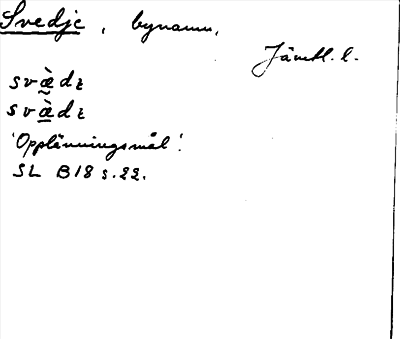 Svedje, bynamn,
Jämtl. l.
svæ̀dɩ
svæ̀dɩ
'Opplänningsmål'.
SL B18 s.22.